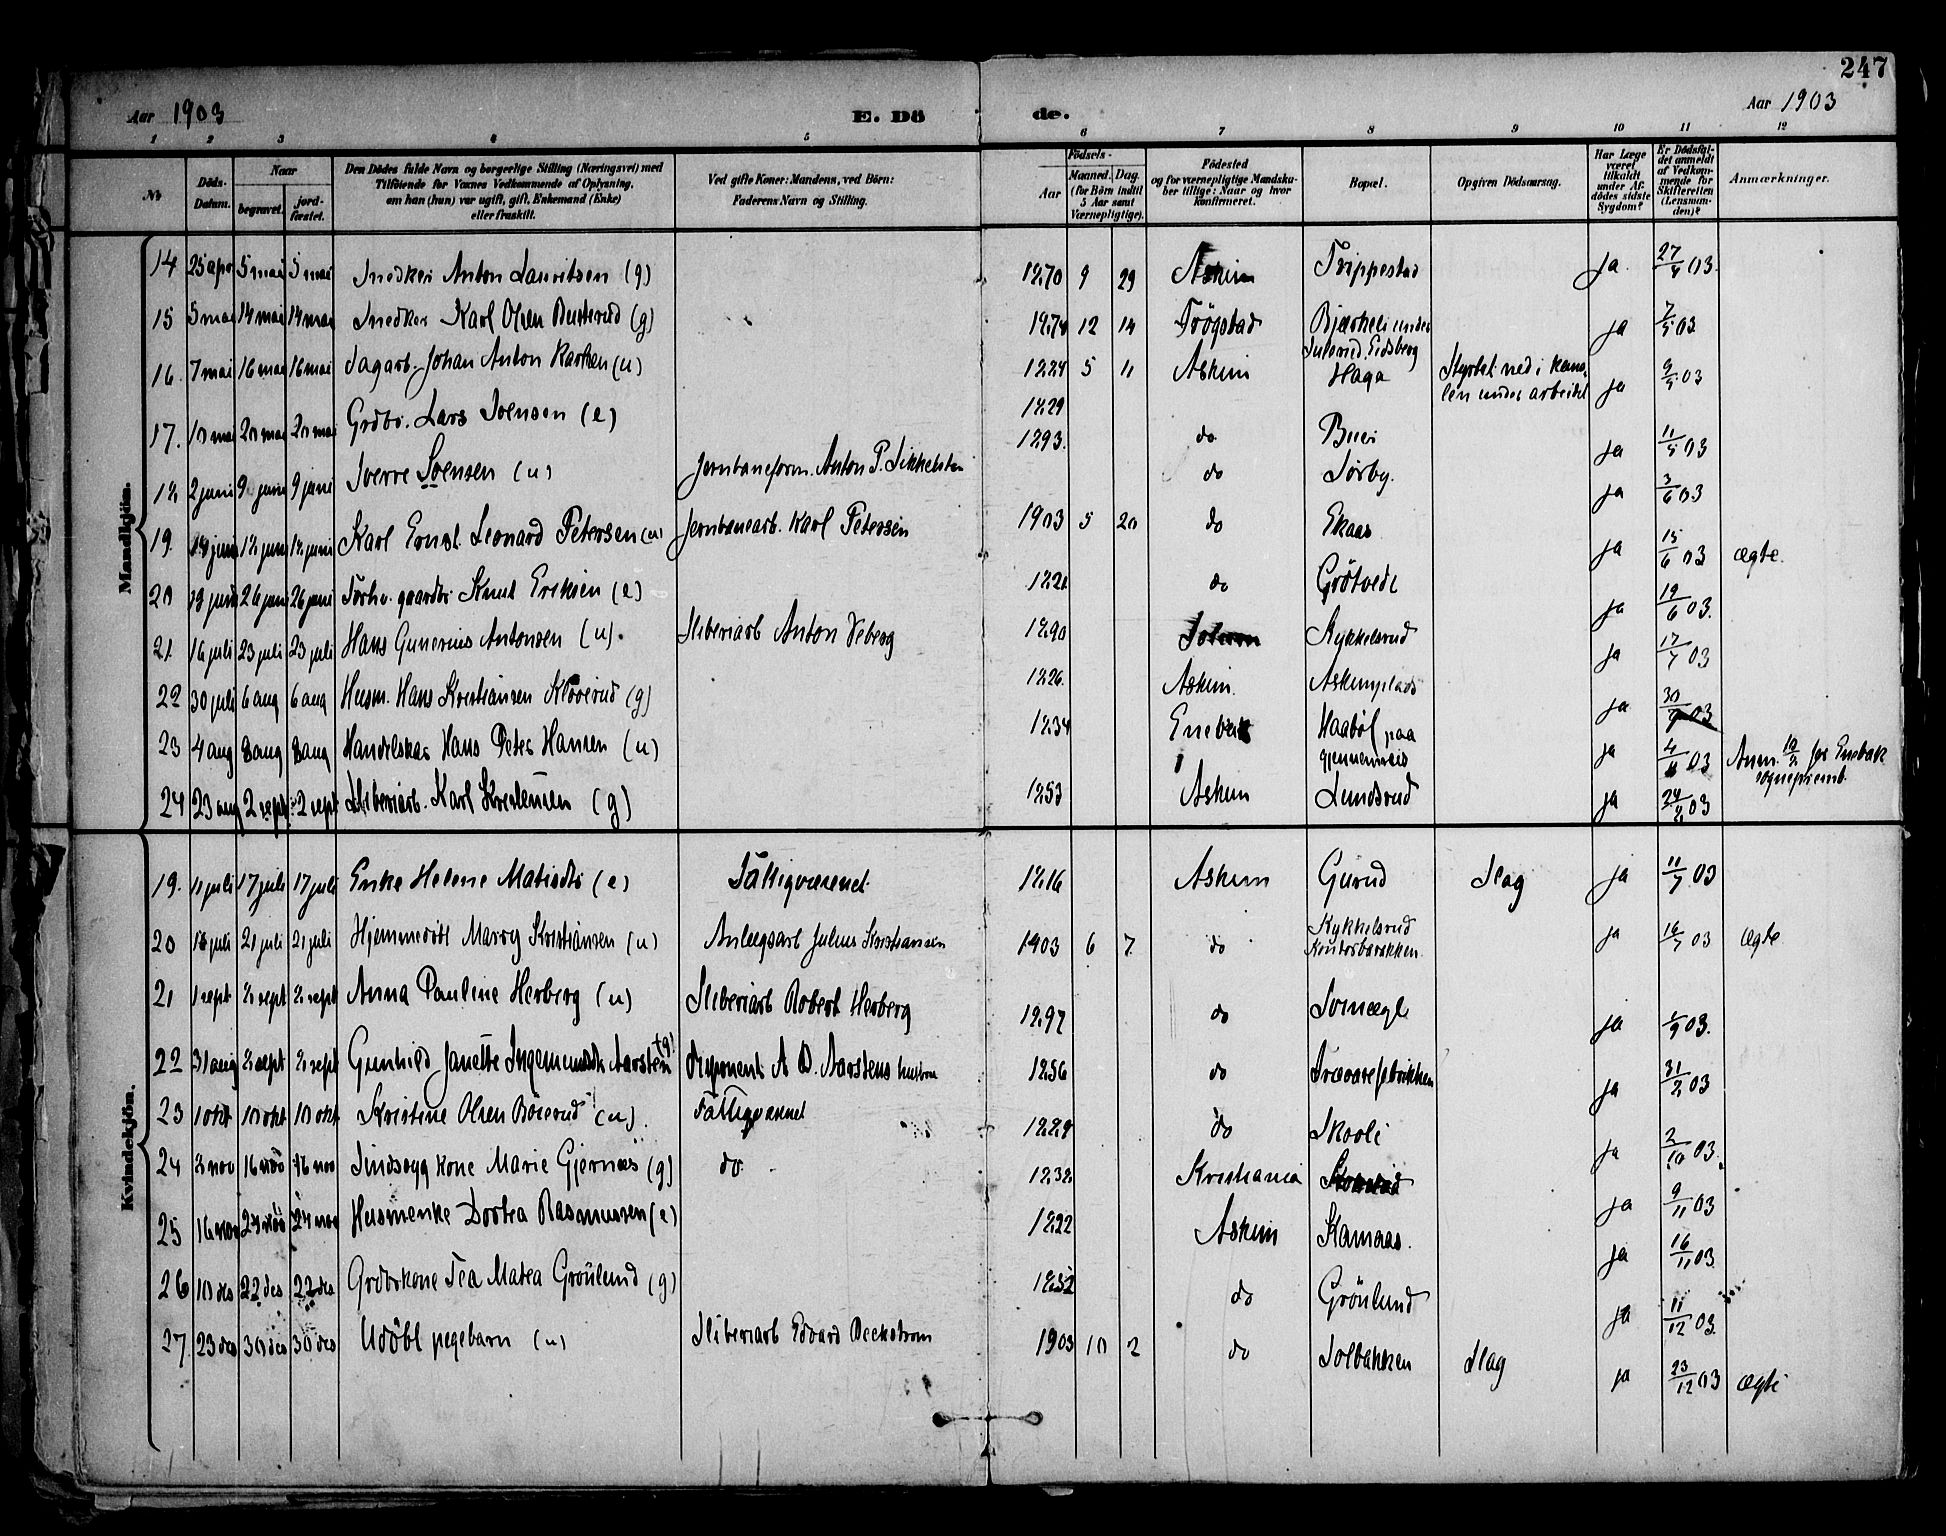 247
Aar 1903 E. Döde. Aar 1903
1 2 3 4 5 6 7 8 9 10 11 12
No.
Döds-Datum.
Naar
begravet.
jordfæstet.
Den Dödes fulde Navn og borgerlige Stilling (Næringsvei) med
Tilföiende for Voxnes Vedkommende af Oplysning,
om han (hun) var ugift, gift, Enkemand (Enke)
eller fraskilt.
Ved gifte Koner: Mandens, ved Börn:
Faderens Navn og Stilling.
Födsels-
Aar
Maaned. Dag.
(for Börn indtil
5 Aar samt
Værnepligtige).
Födested
og for værnepligtige Mandskaber tillige: Naar og hvor
Konfirmeret.
Bopæl.
Opgiven Dödsaarsag.
Har Læge
været
tilkaldt
under Afdödes sidste
Sygdom?
Er Dödsfaldet anmeldt
af Vedkommende for
Skifteretten
(Lensmanden)?
Anmærkninger.
Mandkjön.
14 25 apr 5 mai 5 mai Snedker Anton Lauritsen (g) 1870 9 29 Askim Trippestad ja 27/4 03
15 5 mai 14 mai 14 mai Snedker Karl Olsen (g) 1874 12 14 Trögstad Bjærkeli under Eidsberg ja 7/5 03
16. 7 mai 16 mai 16 mai Dagarb. Johan Anton Karlsen (u) 5 11 Askim Haga Styrtet ned i kanalen under arbeidet ja 9/5 03
17. 10 mai 20 mai 20 mai Grdbr. Lars (e) 1829 do ja 11/5 03
18 2 juni 9 juni 9 juni Sverre (u) Jernbaneform. Anton P. 1893. do Sörby. ja 3/6 03
19. 14 juni 18 juni 18 juni Karl Ernst Leonard Petersen (u) Jernbanearb. Karl Petersen 1903 5 20 do Ekaas ja 15/6 03 ægte.
20 18 juni 26 juni 26 juni Forhv. gaardbr Knut Eriksen (e) do Grötvedt ja 19/6 03.
21. 16 juli 23 juli 23 juli Hans Gunerius Antonsen (u). Sliberiarb Anton Veberg 1890 Kykkelsrud ja 17/7 03
22 30 juli 6 aug 6 aug Husm. Hans Kristiansen (g) 1826. Askim. Askimplads ja 30/7 03
23 4 aug 8 aug 8 aug Handelskar Hans Peter Hansen (u) 1834 Enebak Haaböl paa gjennemreis ja 4/8 03 Anm. for Enebak sogneprest.
24 23 aug 2 sept 2 sept Sliberiarb. Karl Kristensen (g) 1853 Askim Lundsrud ja 24/8 03
Kvindekjön.
19. 11 juli 17 juli 17 juli Enke Helene (e) Fattigvæsenet 1816 Askim Gurud Slag ja 11/7 03
20 16 juli 21 juli 21 juli Hjemmedöbt Marry Kristiansen (u) Anlægsarb Julius Kristiansen 1903 6 7 do Kykkelsrud ja 16/7 03 ægte
21 1 sept 8 sept 8 sept Anna Pauline Herberg (u) Sliberiarb Robert Herberg 1897 do ja 1/9 03.
22 31 aug 8 sept 8 sept Gunhild Janette Aarsten (g) A D. Aarstens hustru 1856 do Trævarefabrikken ja 31/8 03
23 1 okt 10 okt 10 okt Kristine Olsen (u). Fattigvæsenet do Skooli ja 2/10 03.
24 8 nov 16 nov 16 nov kone Marie Gjernæs (g) do 1838 Kristiania ja 9/11 03
25 16 nov 24 nov 24 nov Husmenke Dortea Rasmussen (e) 1822 Askim Kamaas. ja 16/11 03.
26 10 des 22 des 22 des Grdbrkone Tea Matea Grönlund (g) 1852 do Grönlund ja 11/12 03.
27. 23 des 30 des 30 des Udöbt pigebarn (u) Sliberiarb Edvard 1903 10 2 do Solbakken slag ja 23/12 03 ægte